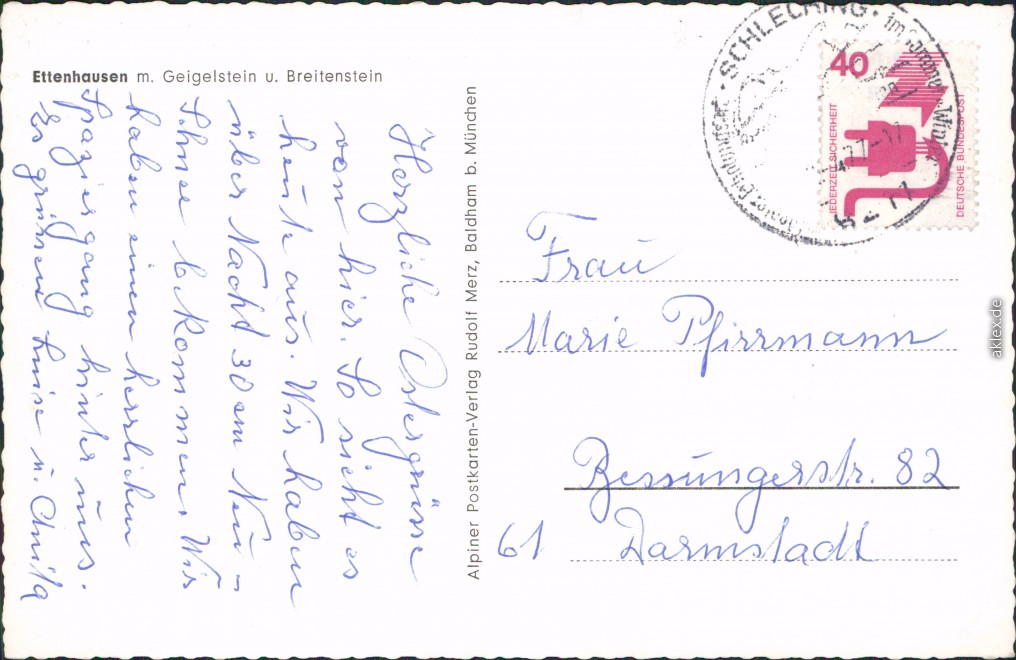 Ettenhausen m. Geigelstein u. Breitenstein
Herzliche Ostergrüsse
von hier. So sieht es
heute aus. Wir haben
über Nacht 30 cm Neu-
Schnee bekommen. Wir
haben einen herrlichen
Spaziergang hinter uns.
Es grüssen Luise u. Anita
Alpiner Postkarten-Verlag Rudolf Merz, Baldham b. München
SCHLECHING · im Sommer u. Winter
40
JEDERZEIT SICHERHEIT
DEUTSCHE BUNDESPOST
Frau
Marie Pfirrmann
Bessungerstr. 82
61 Darmstadt
aklex.de